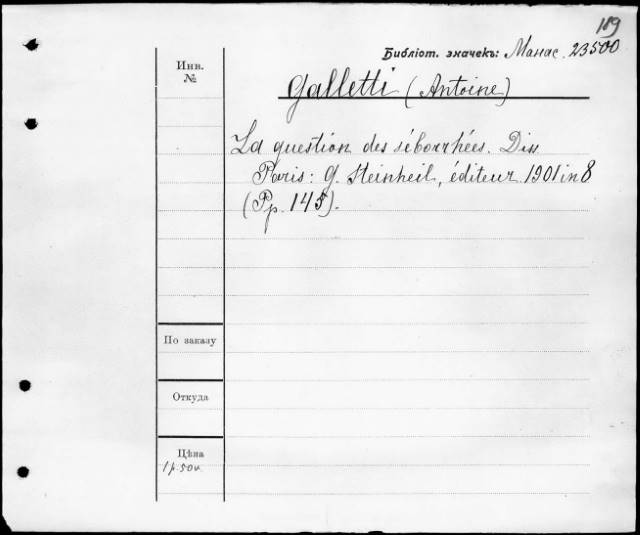 189
Библіот. значекъ: Манас. 23500
Инв.
№
Galletti (Antoine)
La question des séborrhées. Diss
Paris: G. Steinheil, éditeur 1901 in 8
(Pp. 145).
По заказу
Откуда
Цѣна
1 р. 50 к.